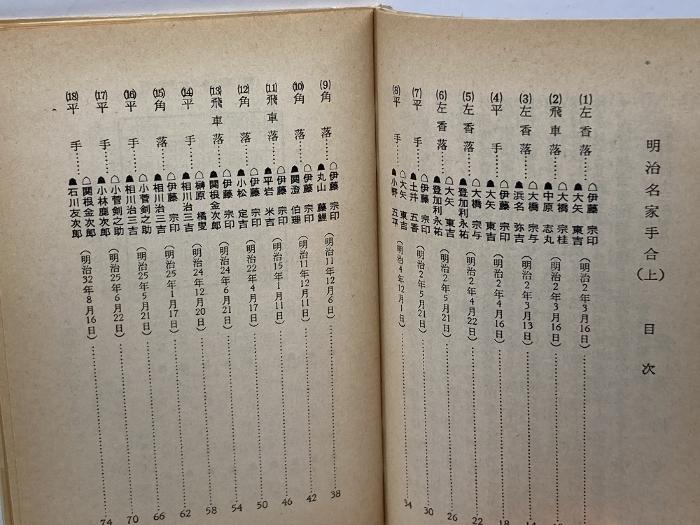 明治名家手合(上) 目次
(1) 左香落 ☖伊藤 宗印
☗大矢 東吉 (明治2年3月16日)
(2) 飛車落 ☖大橋 宗桂
☗中原 志丸 (明治2年3月16日)
(3) 左香落 ☖大橋 宗与
☗浜名 弥吉 (明治2年3月13日)
(4) 平手 ☖伊藤 宗印
☗大矢 東吉 (明治2年4月16日) 18
(5) 左香落 ☖大橋 宗与
☗登加利永祐 (明治2年4月22日) 22
(6) 左香落 ☖大矢 東吉
☗登加利永祐 (明治2年5月21日) 26
(7) 平手 ☖伊藤 宗印
☗土井 五香 (明治2年5月21日) 30
(8) 平手 ☖大矢 東吉
☗小野 五平 (明治4年12月1日) 34
(9) 角落 ☖伊藤 宗印
☗丸山 藤鯉 (明治11年12月6日) 38
(10) 角落 ☖伊藤 宗印
☗関澄 伯理 (明治11年12月11日) 42
(11) 飛車落 ☖伊藤 宗印
☗平岩 米吉 (明治15年1月11日) 46
(12) 角落 ☖伊藤 宗印
☗小松 定吉 (明治22年4月17日) 50
(13) 飛車落 ☖伊藤 宗印
☗関根金次郎 (明治24年6月21日) 54
(14) 平手 ☖榊原 橘叟
☗相川治三吉 (明治24年12月20日) 58
(15) 角落 ☖伊藤 宗印
☗相川治三吉 (明治25年1月17日) 62
(16) 平手 ☖小菅剣之助
☗相川治三吉 (明治25年5月21日) 66
(17) 平手 ☖小菅剣之助
☗小林鹿次郎 (明治25年6月22日) 70
(18) 平手 ☖関根金次郎
☗石川友次郎 (明治32年8月16日) 74